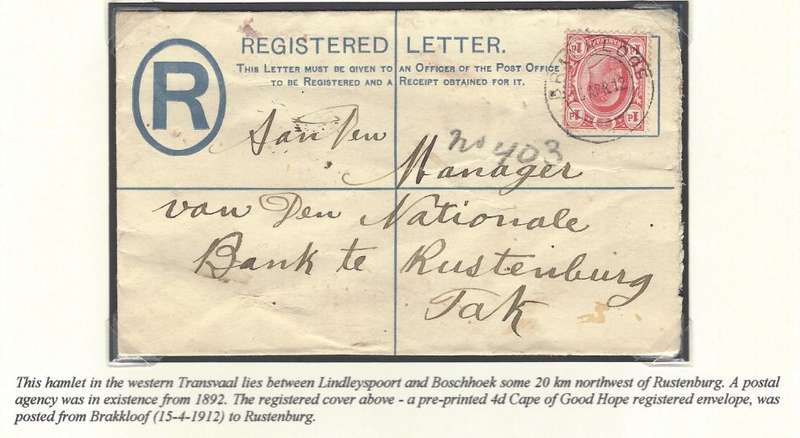 REGISTERED LETTER.
THIS LETTER MUST BE GIVEN TO AN OFFICER OF THE POST OFFICE
TO BE REGISTERED AND A RECEIPT OBTAINED FOR IT.
R
Aan Den
no 403
Manager
van Den Nationale
Bank te Rustenburg
Tak
This hamlet in the western Transvaal lies between Lindleyspoort and Boschhoek some 20 km northwest of Rustenburg. A postal
agency was in existence from 1892. The registered cover above - a pre-printed 4d Cape of Good Hope registered envelope, was
posted from Brakkloof (15-4-1912) to Rustenburg.